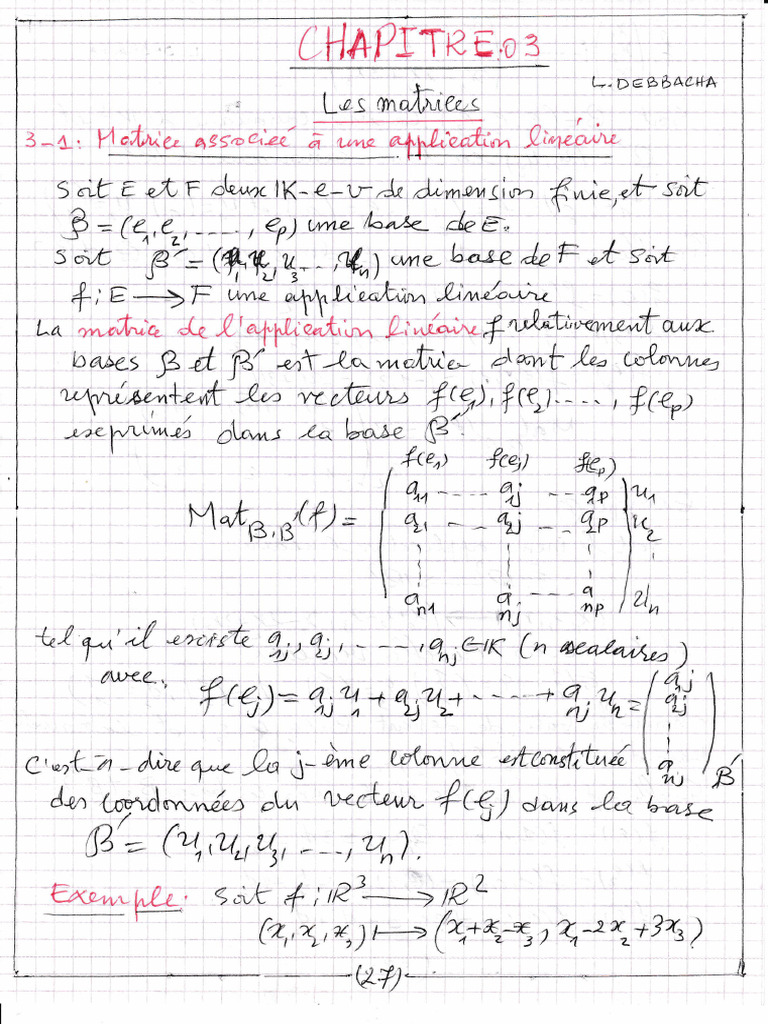 CHAPITRE.03
L.DEBBACHA
Les matrices
3-1: Matrice associeé à une application linéaire
Soit E et F deux IK-e-v de dimension finie, et soit
β = (e₁, e₂, ....., eₚ) une base de E.
Soit β' = (u₁, u₂, u₃ ..., uₙ) une base de F et soit
f: E → F une application linéaire
La matrice de l'application linéaire f relativement aux
bases β et β' est la matrice dont les colonnes
représentent les vecteurs f(e₁), f(e₂) ....., f(eₚ)
exprimés dans la base β'.
f(e₁) f(eⱼ) f(eₚ)
a₁₁ ---- a₁ⱼ ---- a₁ₚ u₁
Mat β,β' (f) = a₂₁ -- a₂ⱼ -- a₂ₚ u₂
aₙ₁ aₙⱼ ---- aₙₚ uₙ
tel qu'il existe a₁ⱼ, a₂ⱼ, ----, aₙⱼ ∈ IK (n scalaires)
avec: f(eⱼ) = a₁ⱼ u₁ + a₂ⱼ u₂ + ------ + aₙⱼ uₙ = (a₁ⱼ a₂ⱼ ⋮ aₙⱼ) β'
c'est-à-dire que la j-ème colonne est constituée
des coordonnées du vecteur f(eⱼ) dans la base
β' = (u₁, u₂, u₃, ..., uₙ).
Exemple: Soit f: IR³ → IR²
(x₁, x₂, x₃) ↦ (x₁+x₂-x₃, x₁-2x₂+3x₃)
(27)